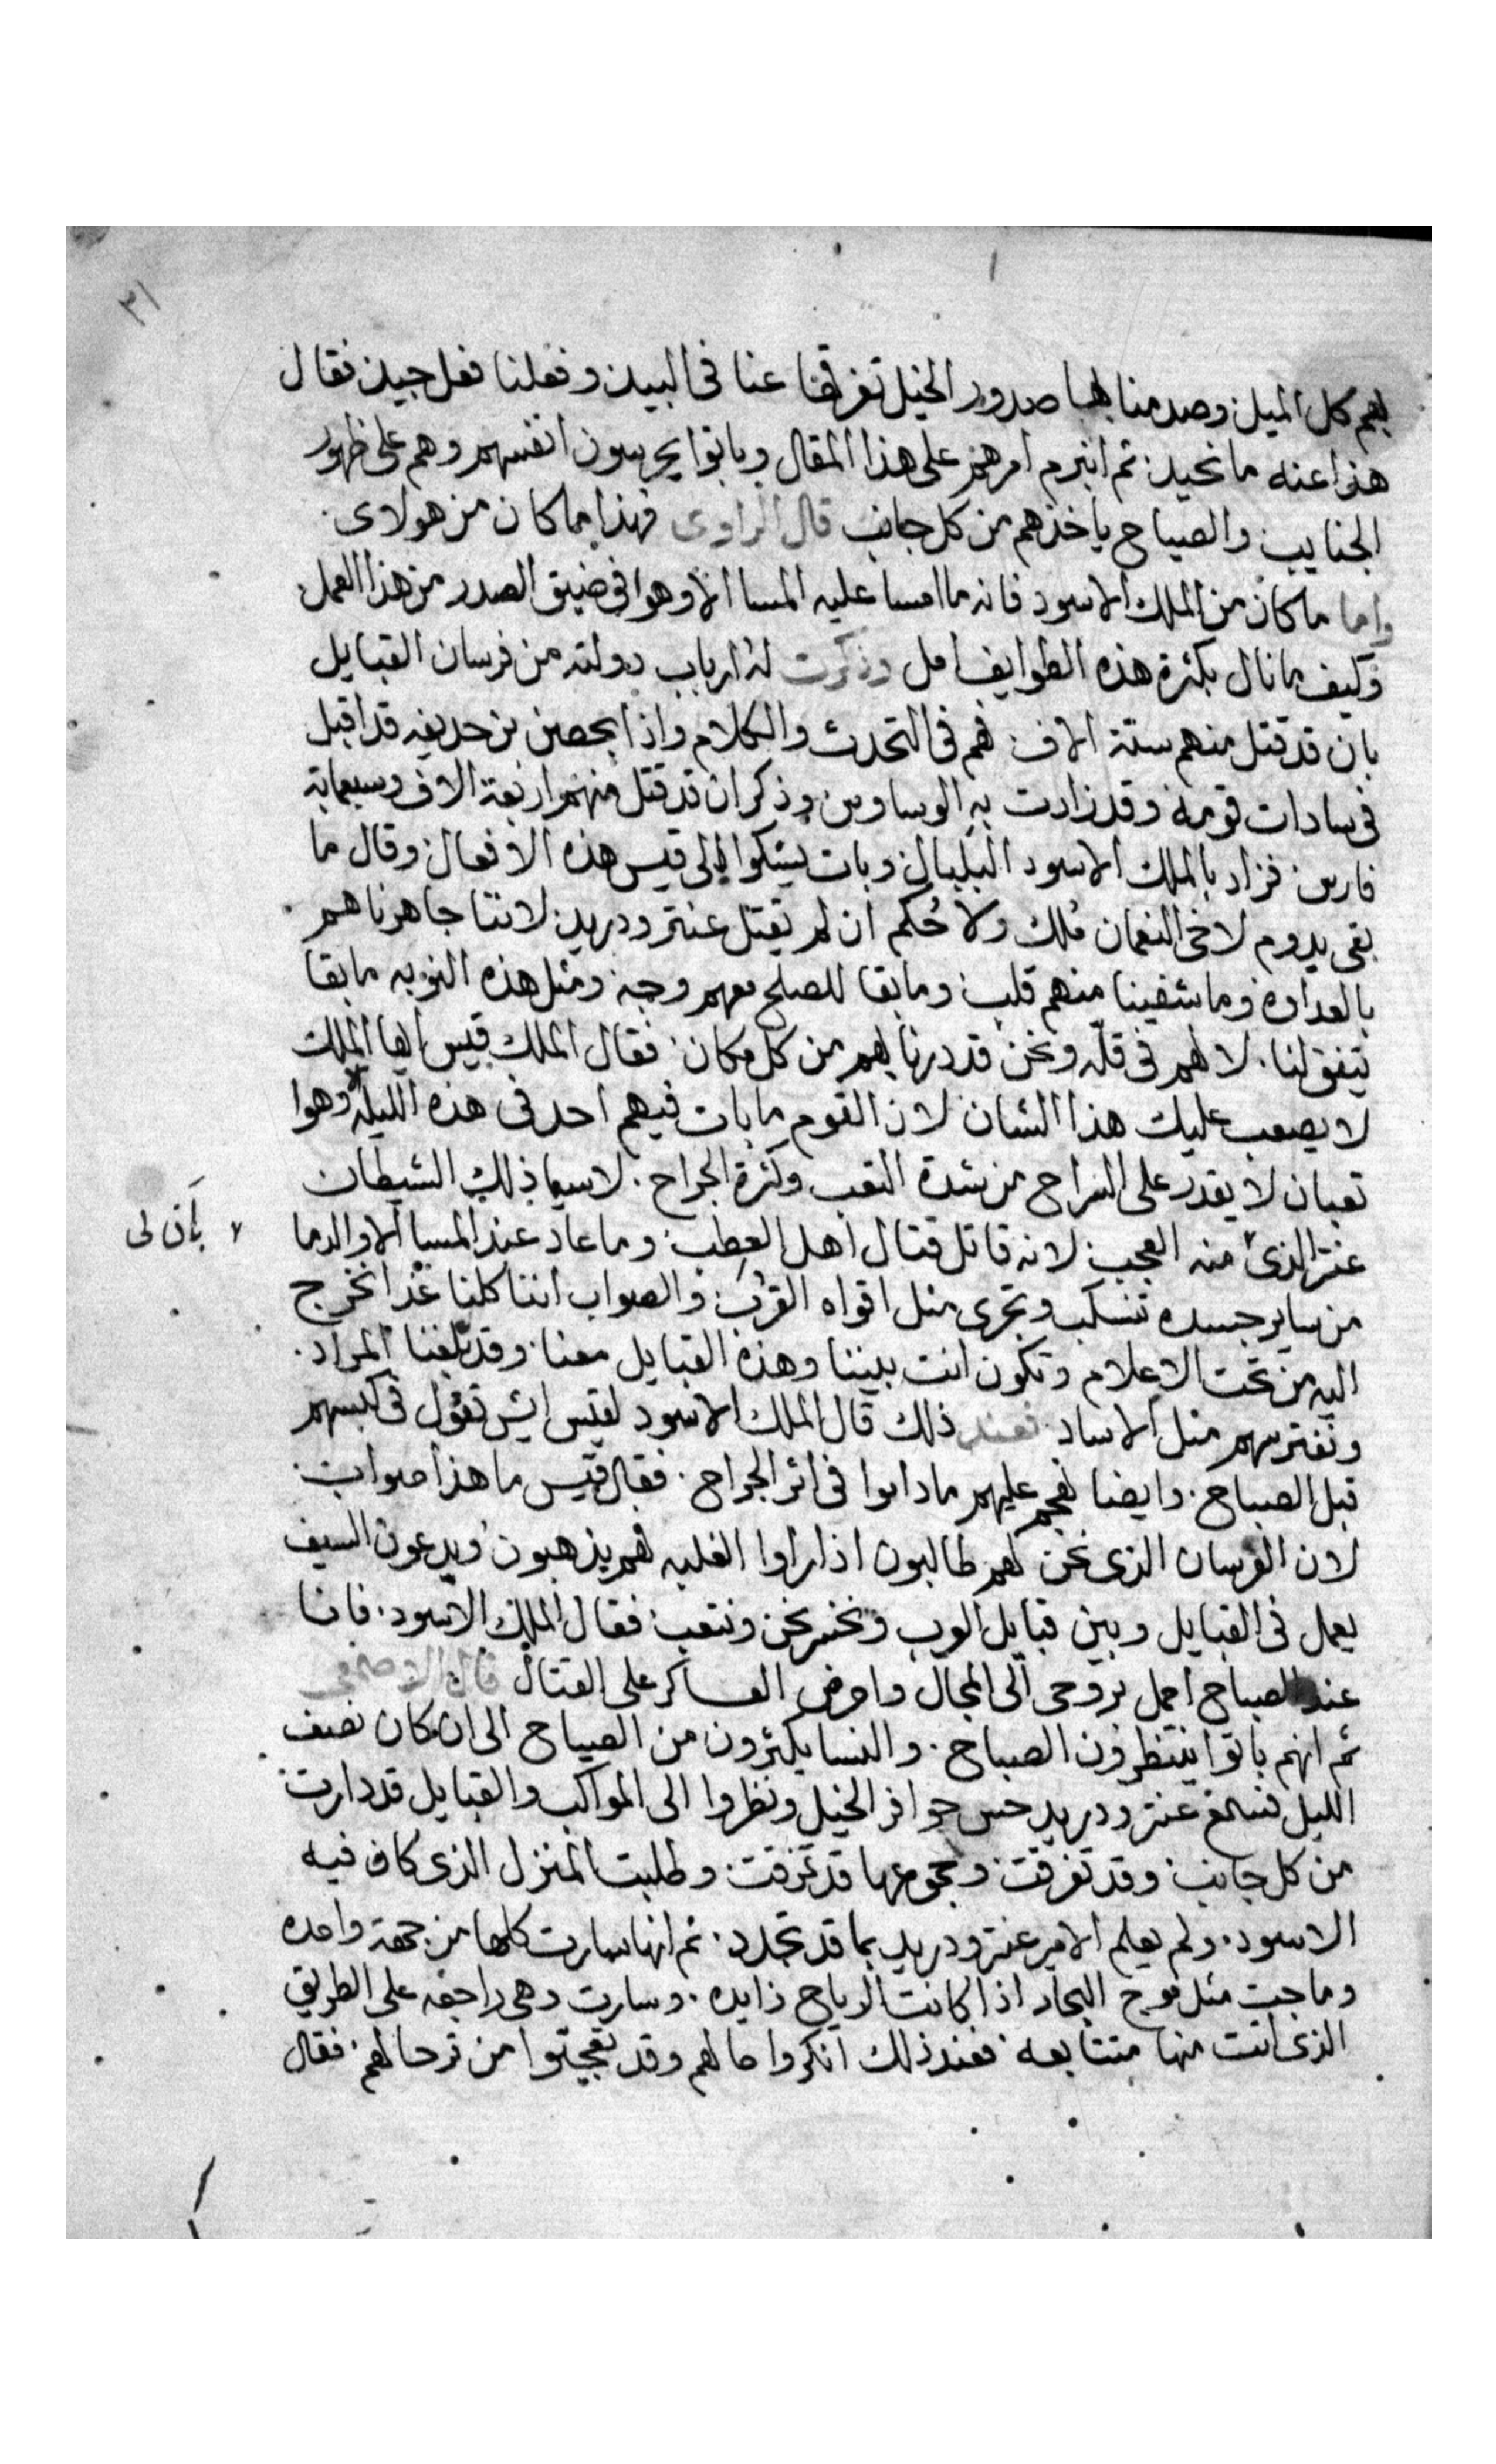 ٣١
بهم كل الميل وصد منا لهبا صدور الخيل تفرقنا عنا في البيد وفعلنا فعل جيد فقال
هذا عنه ما نحيد ثم انبرم امرهم على هذا المقال وباتوا يحرسون انفسهم وهم على ظهور
الجنايب والصياح ياخذهم من كل جانب قال الراوى فهذا ما كان من هولاى
واما ما كان من الملك الاسود فانه ما امسا عليه المسا الا وهوا في ضيق الصدر من هذا العمل
وكيف ما نال بكثرة هذه الطوايف امل وذكرت له ارباب دولته من فرسان القبايل
بان قد قتل منهم ستة الاف فهم في التحدث والكلام واذا بحصن بن حديفه قد اقبل
في سادات قومه وقد زادت به الوساوس وذكر ان قد قتل منهم اربعة الاف وسبعماية
فارس فزاد بالملك الاسود البلبال وبات يشكوا الى قيس هذه الافعال وقال ما
بقى يدوم لاخى النعمان ملك ولا حُكم ان لم يقتل عنتر ودريد لاننا جاهرناهم
بالعداوه وما شفينا منهم قلب وما بقا للصلح معهم وجه ومثل هذه النوبه ما بقا
يتفق لنا لا لهم في قله ونحن قد درنا بهم من كل مكان فقال الملك قيس ايها الملك
لا يصعب عليك هذا الشان لان القوم ما بات فيهم احد في هذه الليله وهوا
تعبان لا يقدر على البراح من شدة التعب وكثرة الجراح لا سيما ذلك الشيطان
عنتر الذى منه العجب لانه قاتل قتال اهل العطب وما عاد عند المسا الا والدما
بان لى
من ساير جسده تنسكب وتجرى مثل افواه القرب والصواب اننا كلنا غدا نخرج
اليه من تحت الاعلام وتكون انت بيننا وهذه القبايل معنا وقد بلغنا المراد
ونفترسهم مثل الاساد فعند ذلك قال الملك الاسود لقيس ايش تقول في كبسهم
قبل الصباح وايضا نهجم عليهم ما داموا في اثر الجراح فقال قيس ما هذا صواب
لان الفرسان الذى نحن لهم طالبون اذا راوا الغلبه فهم يذهبون ويدعون السيف
يعمل في القبايل وبين قبايل العرب ونخسر نحن ونتعب فقال الملك الاسود فانا
عند الصباح احمل بروحى الى المجال واحرض العساكر على القتال قال الاصمعى
ثم انهم باتوا ينتظرون الصباح والنسا يكثرون من الصياح الى ان كان نصف
الليل فسمع عنتر ودريد حس حوافر الخيل ونظروا الى المواكب والقبايل قد دارت
من كل جانب وقد تفرقت وجموعها قد تمزقت وطلبت المنزل الذى كان فيه
الاسود ولم يعلم الامير عنتر ودريد بما قد تجدد ثم انها سارت كلها من جهة واحده
وماجت مثل موج البحار اذا كانت الرياح زايده وسارت وهى راجعه على الطريق
الذى اتت منها متتابعه فعند ذلك انكروا حالهم وقد تعجبوا من ترحالهم فقال